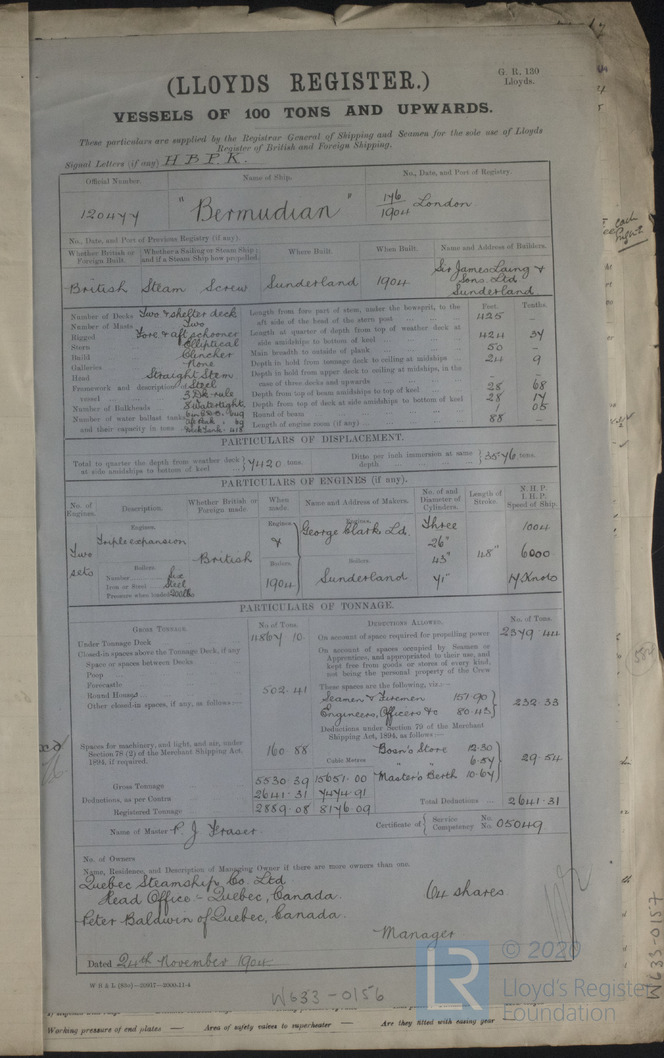 G. R. 130
Lloyds.
(LLOYDS REGISTER.)
VESSELS OF 100 TONS AND UPWARDS.
These particulars are supplied by the Registrar General of Shipping and Seamen for the sole use of Lloyds
Register of British and Foreign Shipping.
Signal Letters (if any) H B P K.
Official Number. Name of Ship. No., Date, and Port of Registry.
120477 "Bermudian" 176/1904 London
No., Date, and Port of Previous Registry (if any).
Whether British or Foreign Built. Whether a Sailing or Steam Ship; and if a Steam Ship how propelled. Where Built. When Built. Name and Address of Builders.
British Steam Screw Sunderland 1904 Sir James Laing & Sons. Ltd Sunderland
Number of Decks Two & shelter deck
Number of Masts Two
Rigged Fore & aft schooner
Stern Elliptical
Build Clincher
Galleries None
Head Straight Stem
Framework and description of vessel Steel
Number of Bulkheads 8 watertight
Number of water ballast tanks and their capacity in tons
Feet. Tenths.
Length from fore part of stem, under the bowsprit, to the aft side of the head of the stern post 425
Length at quarter of depth from top of weather deck at side amidships to bottom of keel 424 34
Main breadth to outside of plank 50 –
Depth in hold from tonnage deck to ceiling at midships 24 9
Depth in hold from upper deck to ceiling at midships, in the case of three decks and upwards – –
Depth from top of beam amidships to top of keel 28 68
Depth from top of deck at side amidships to bottom of keel 28 14
Round of beam 1 05
Length of engine room (if any) 88 –
PARTICULARS OF DISPLACEMENT.
Total to quarter the depth from weather deck at side amidships to bottom of keel 7420 tons.
Ditto per inch immersion at same depth 35.76 tons.
PARTICULARS OF ENGINES (if any).
No. of Engines. Description. Whether British or Foreign made. When made. Name and Address of Makers. No. of and Diameter of Cylinders. Length of Stroke. N. H. P. I. H. P. Speed of Ship.
Engines. Engines Engines.
Triple expansion & George Clark Ld. Three 1004
Two sets British 26" 43" 48" 6000
Boilers. Boilers. Boilers.
Number six
Iron or Steel Steel
Pressure when loaded 200 lbs
1904 Sunderland 71" 17 Knots
PARTICULARS OF TONNAGE.
GROSS TONNAGE. No of Tons. DEDUCTIONS ALLOWED. No. of Tons.
Under Tonnage Deck 4867 10
On account of space required for propelling power 2379 44
Closed-in spaces above the Tonnage Deck, if any
Space or spaces between Decks
Poop
Forecastle
Round Houses
Other closed-in spaces, if any, as follows:— 502.41
On account of spaces occupied by Seamen or Apprentices, and appropriated to their use, and kept free from goods or stores of every kind, not being the personal property of the Crew
These spaces are the following, viz.:—
Seamen & Firemen 151.90
Engineers, Officers &c 80.43
232.33
Deductions under Section 79 of the Merchant Shipping Act, 1894, as follows:—
Boan's Store 12.30
" " 6.57
Master's Berth 10.67
29.54
Spaces for machinery, and light, and air, under Section 78 (2) of the Merchant Shipping Act, 1894, if required. 160.88
Cubic Metres
Gross Tonnage 5530.39 15651.00
Deductions, as per Contra 2641.31 7474.91 Total Deductions 2641.31
Registered Tonnage 2889.08 8176 09
Name of Master P. J. Fraser. Certificate of Service No. Competency No. 05049
No. of Owners
Name, Residence, and Description of Managing Owner if there are more owners than one.
Quebec Steamship Co. Ltd.
Head Office – Quebec, Canada. 64 shares
Peter Baldwin of Quebec, Canada.
Manager
Dated 24th November 1904
W633-0156
© 2020
LR
Lloyd's Register
Foundation
W633-0157
Working pressure of end plates — Area of safety valves to superheater — Are they fitted with easing gear